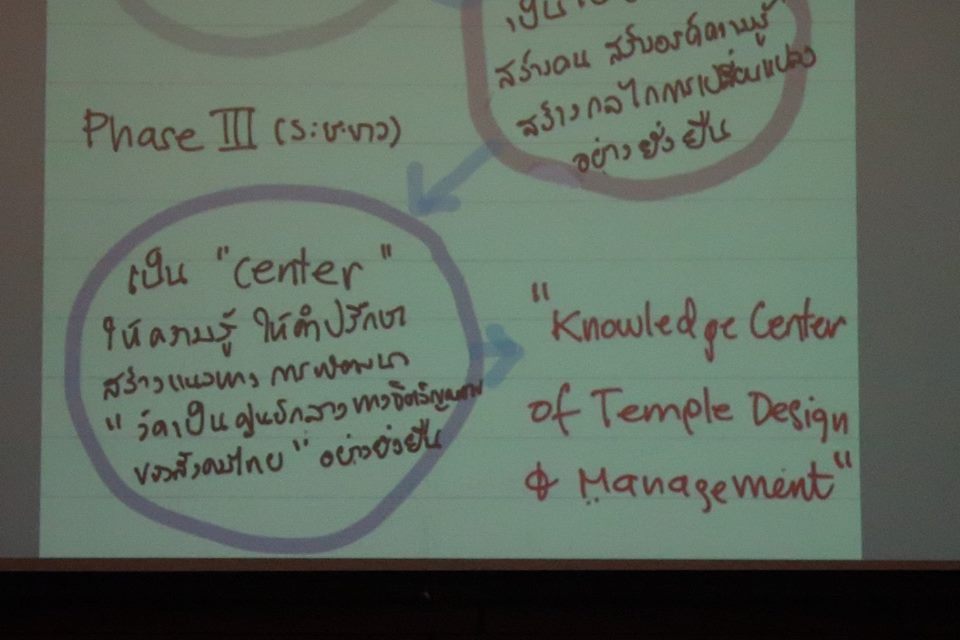 เป็น
สร้างคน สร้างองค์ความรู้
สร้างกลไกการเปลี่ยนแปลง
อย่างยั่งยืน
Phase III (ระยะยาว)
เป็น "center"
ให้ความรู้ ให้คำปรึกษา
สร้างแนวทาง การพัฒนา
"วัดเป็นศูนย์กลางทางจิตวิญญาณ
ของสังคมไทย" อย่างยั่งยืน
"Knowledge Center
of Temple Design
& Management"